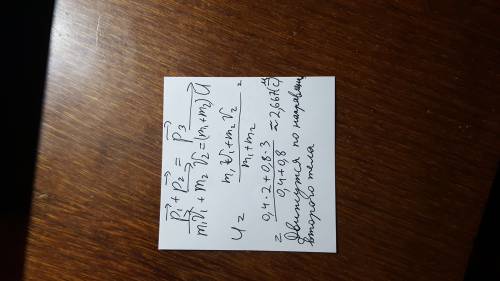 p⃗₁ + p⃗₂ = p⃗₃
m₁v⃗₁ + m₂v⃗₂ = (m₁+m₂)U⃗
U = (m₁v₁ + m₂v₂)/(m₁+m₂) =
= (0,4·2 + 0,8·3)/(0,4+0,8) ≈ 2,667(м/с)
Движутся по направлен
второго тела